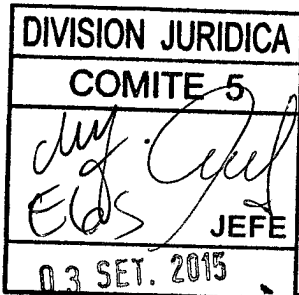 DIVISION JURIDICA
COMITE 5
JEFE
03 SET. 2015